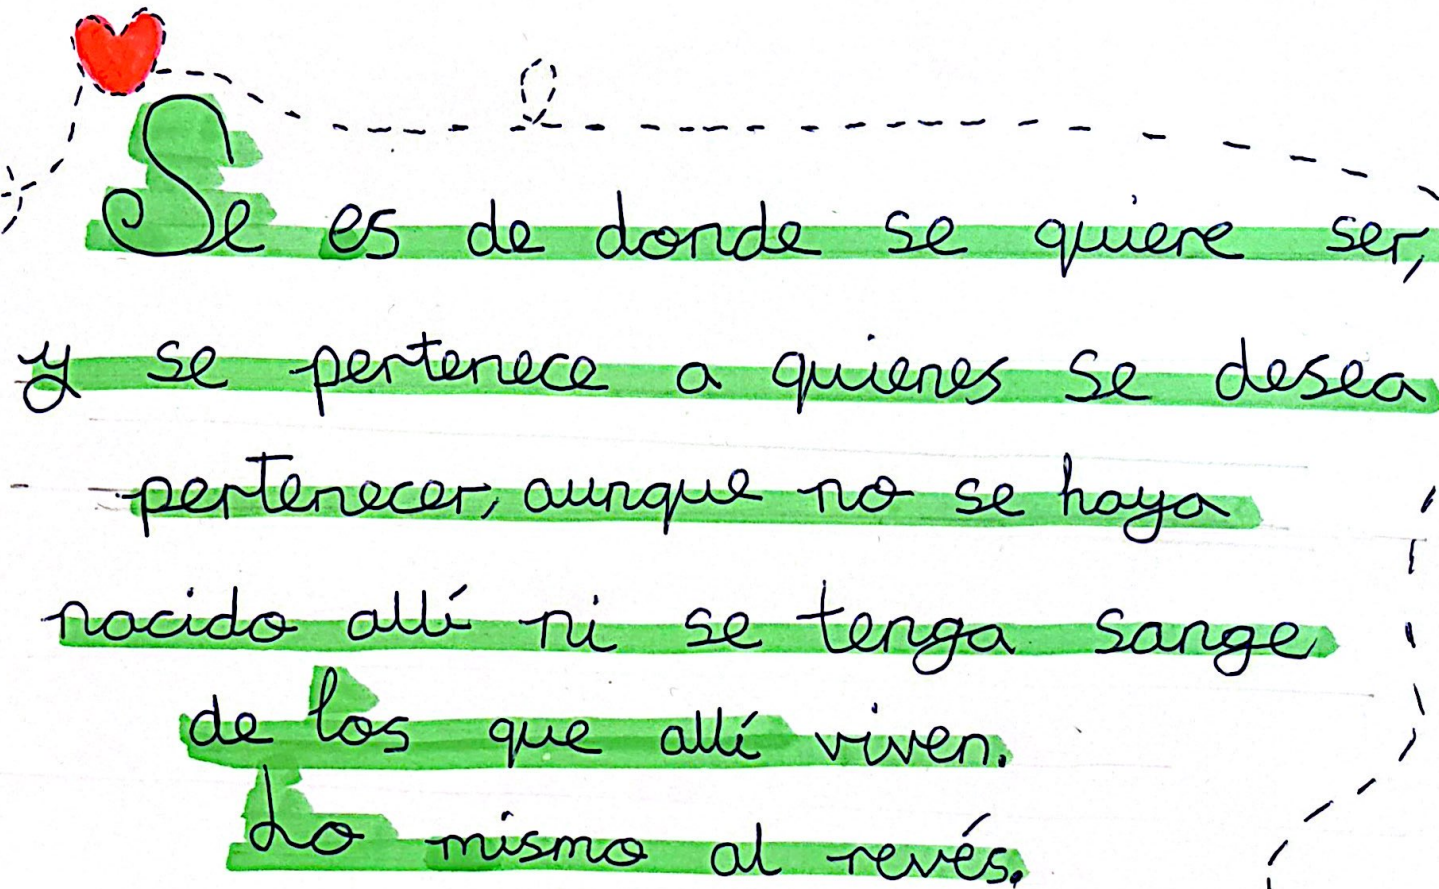 Se es de donde se quiere ser,
y se pertenece a quienes se desea
pertenecer, aunque no se haya
nacido allí ni se tenga sange
de los que allí viven.
Lo mismo al revés.